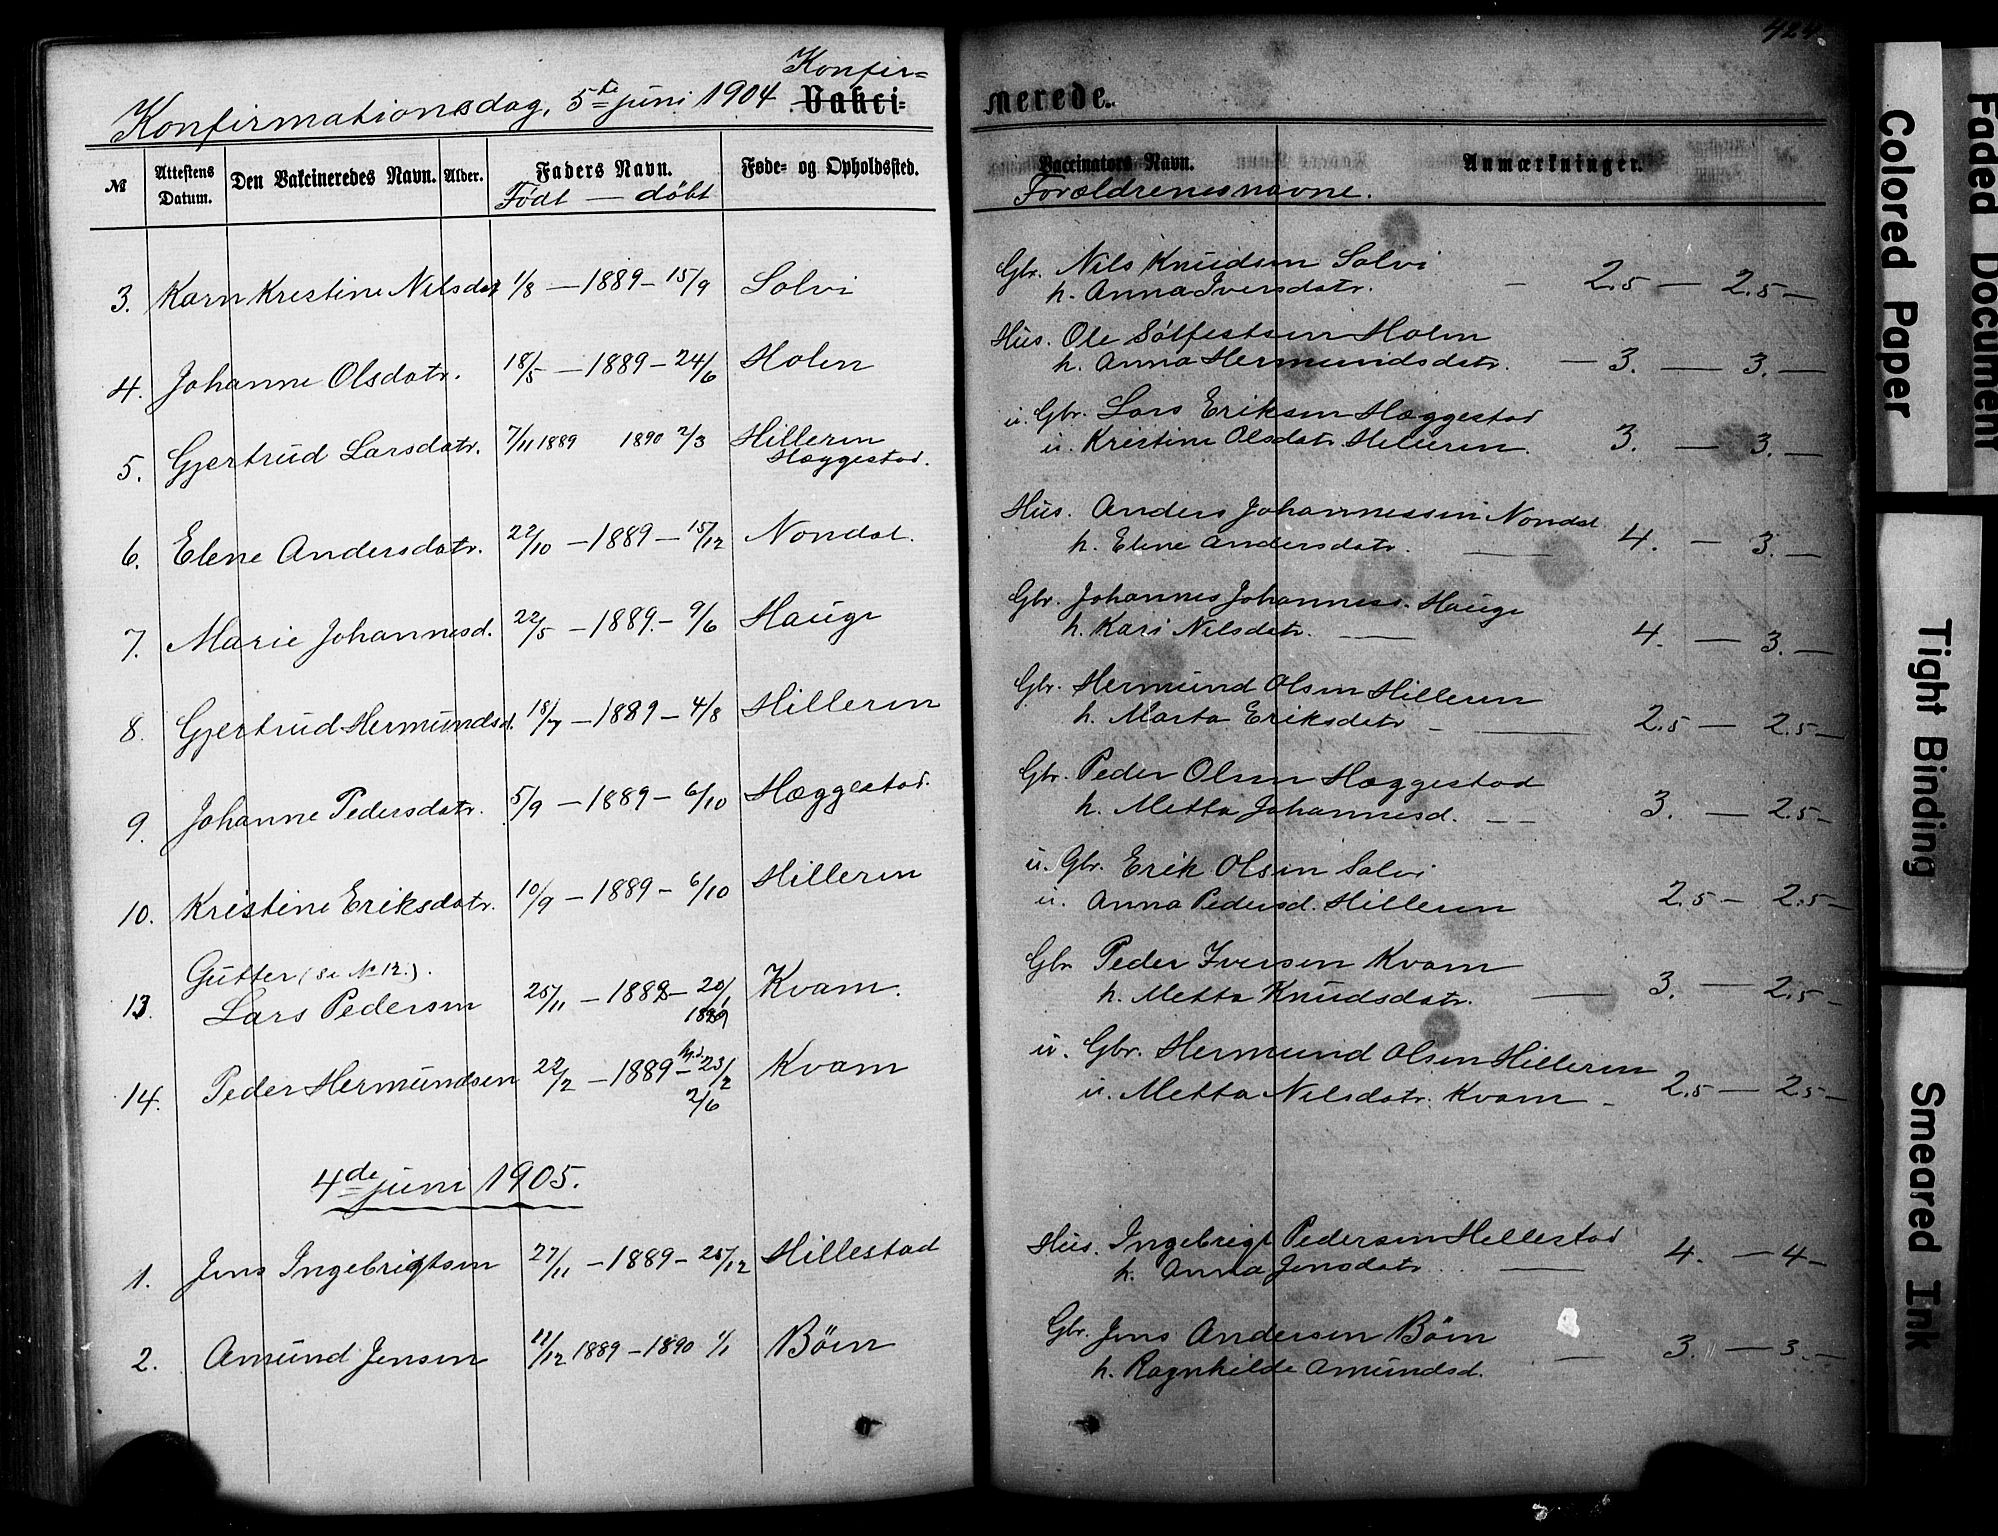 424
Konfirmationsdag, 5te juni 1904 Konfir=
Vakci= merede.
№ Attestens Datum. Den Vakcineredes Navn. Alder. Faders Navn. Føde- og Opholdssted. Vaccinators Navn. Anmærkninger.
Født — døbt Forældrenes navne.
3. Karn Kristine Nilsdat 1/8 — 1889 — 15/9 Solvi Gbr. Nils Knudsen Solvi
h. Anna Iversdatr. — 2.5 — 2.5 —
4. Johanne Olsdatr. 18/5 — 1889 — 24/6 Holen Hus. Ole Sølfestsen Holen
h. Anna Hermundsdatr. — 3. — 3. —
5. Gjertrud Larsdatr. 7/11 1889 1890 2/3 Hilleren u. Gbr. Lars Eriksen Hæggestad
Hæggestad. u. Kristine Olsdatr Hilleren. 3. — 3. —
6. Elene Andersdatr. 22/10 — 1889 — 15/12 Nondal. Hus. Anders Johannessen Nondal
h. Elene Andersdatr. — 4. — 3. —
7. Marie Johannesd. 22/5 — 1889. — 9/6 Hauge Gbr. Johannes Johanness. Hauge
h. Kari Nilsdatr. — 4. — 3. —
8. Gjertrud Hermundsd. 18/7 — 1889 — 4/8 Hilleren Gbr. Hermund Olsen Hilleren
h. Marta Eriksdatr — 2.5 — 2.5 —
9. Johanne Pedersdatr. 5/9 — 1889 — 6/10 Hæggestad. Gbr. Peder Olsen Hæggestad
h. Metta Johannesd. — — 3. — 2.5 —
10. Kristine Eriksdatr. 10/9 — 1889 — 6/10 Hilleren u. Gbr. Erik Olsen Solvi
u. Anna Pedersd. Hilleren 2.5 — 2.5 —
Gutter (se No 12.).
13. Lars Pedersen 25/11 — 1888 — 20/1 Kvam. Gbr Peder Iversen Kvam
1889 h. Metta Knudsdatr. — 3. — 2.5 —
14. Peder Hermundsen 22/2 — 1889 — hjd. 23/2 Kvam u. Gbr. Hermund Olsen Hilleren
2/6 u. Metta Nilsdatr. Kvam — 2.5 — 2.5 —
4de juni 1905.
1. Jens Ingebrigtsen 27/11 — 1889 — 25/12 Hillestad Hus. Ingebrigt Pedersen Hillestad
h. Anna Jensdatr. — 4. — 4 —
2. Amund Jensen 11/12 1889 — 1890 1/1 Böen Gbr. Jens Andersen Böen
h. Ragnhilde Amundsd. — 3. — 3. —
Faded Document
Colored Paper
Tight Binding
Smeared Ink